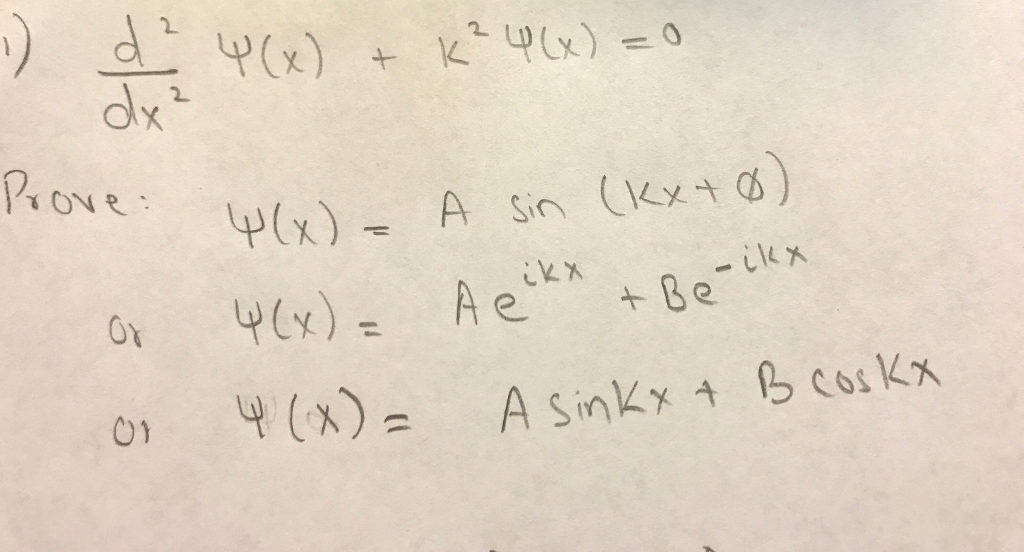 1) d²/dx² Ψ(x) + k² Ψ(x) = 0
Prove: Ψ(x) = A sin (kx + ø)
or Ψ(x) = A e^{ikx} + B e^{-ikx}
or Ψ(x) = A sin kx + B cos kx